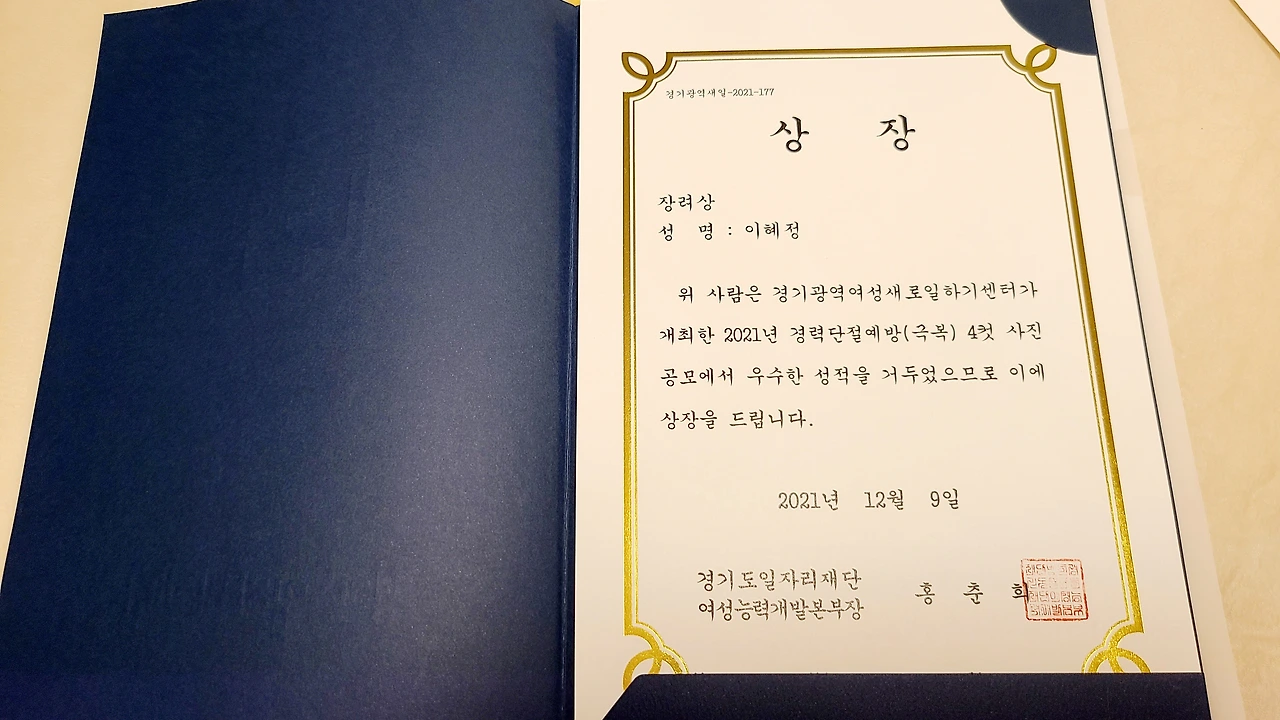 경기광역새일-2021-177
상 장
장려상
성 명 : 이혜정
위 사람은 경기광역여성새로일하기센터가
개최한 2021년 경력단절예방(극복) 4컷 사진
공모에서 우수한 성적을 거두었으므로 이에
상장을 드립니다.
2021년 12월 9일
경기도일자리재단
여성능력개발본부장 홍 춘 희